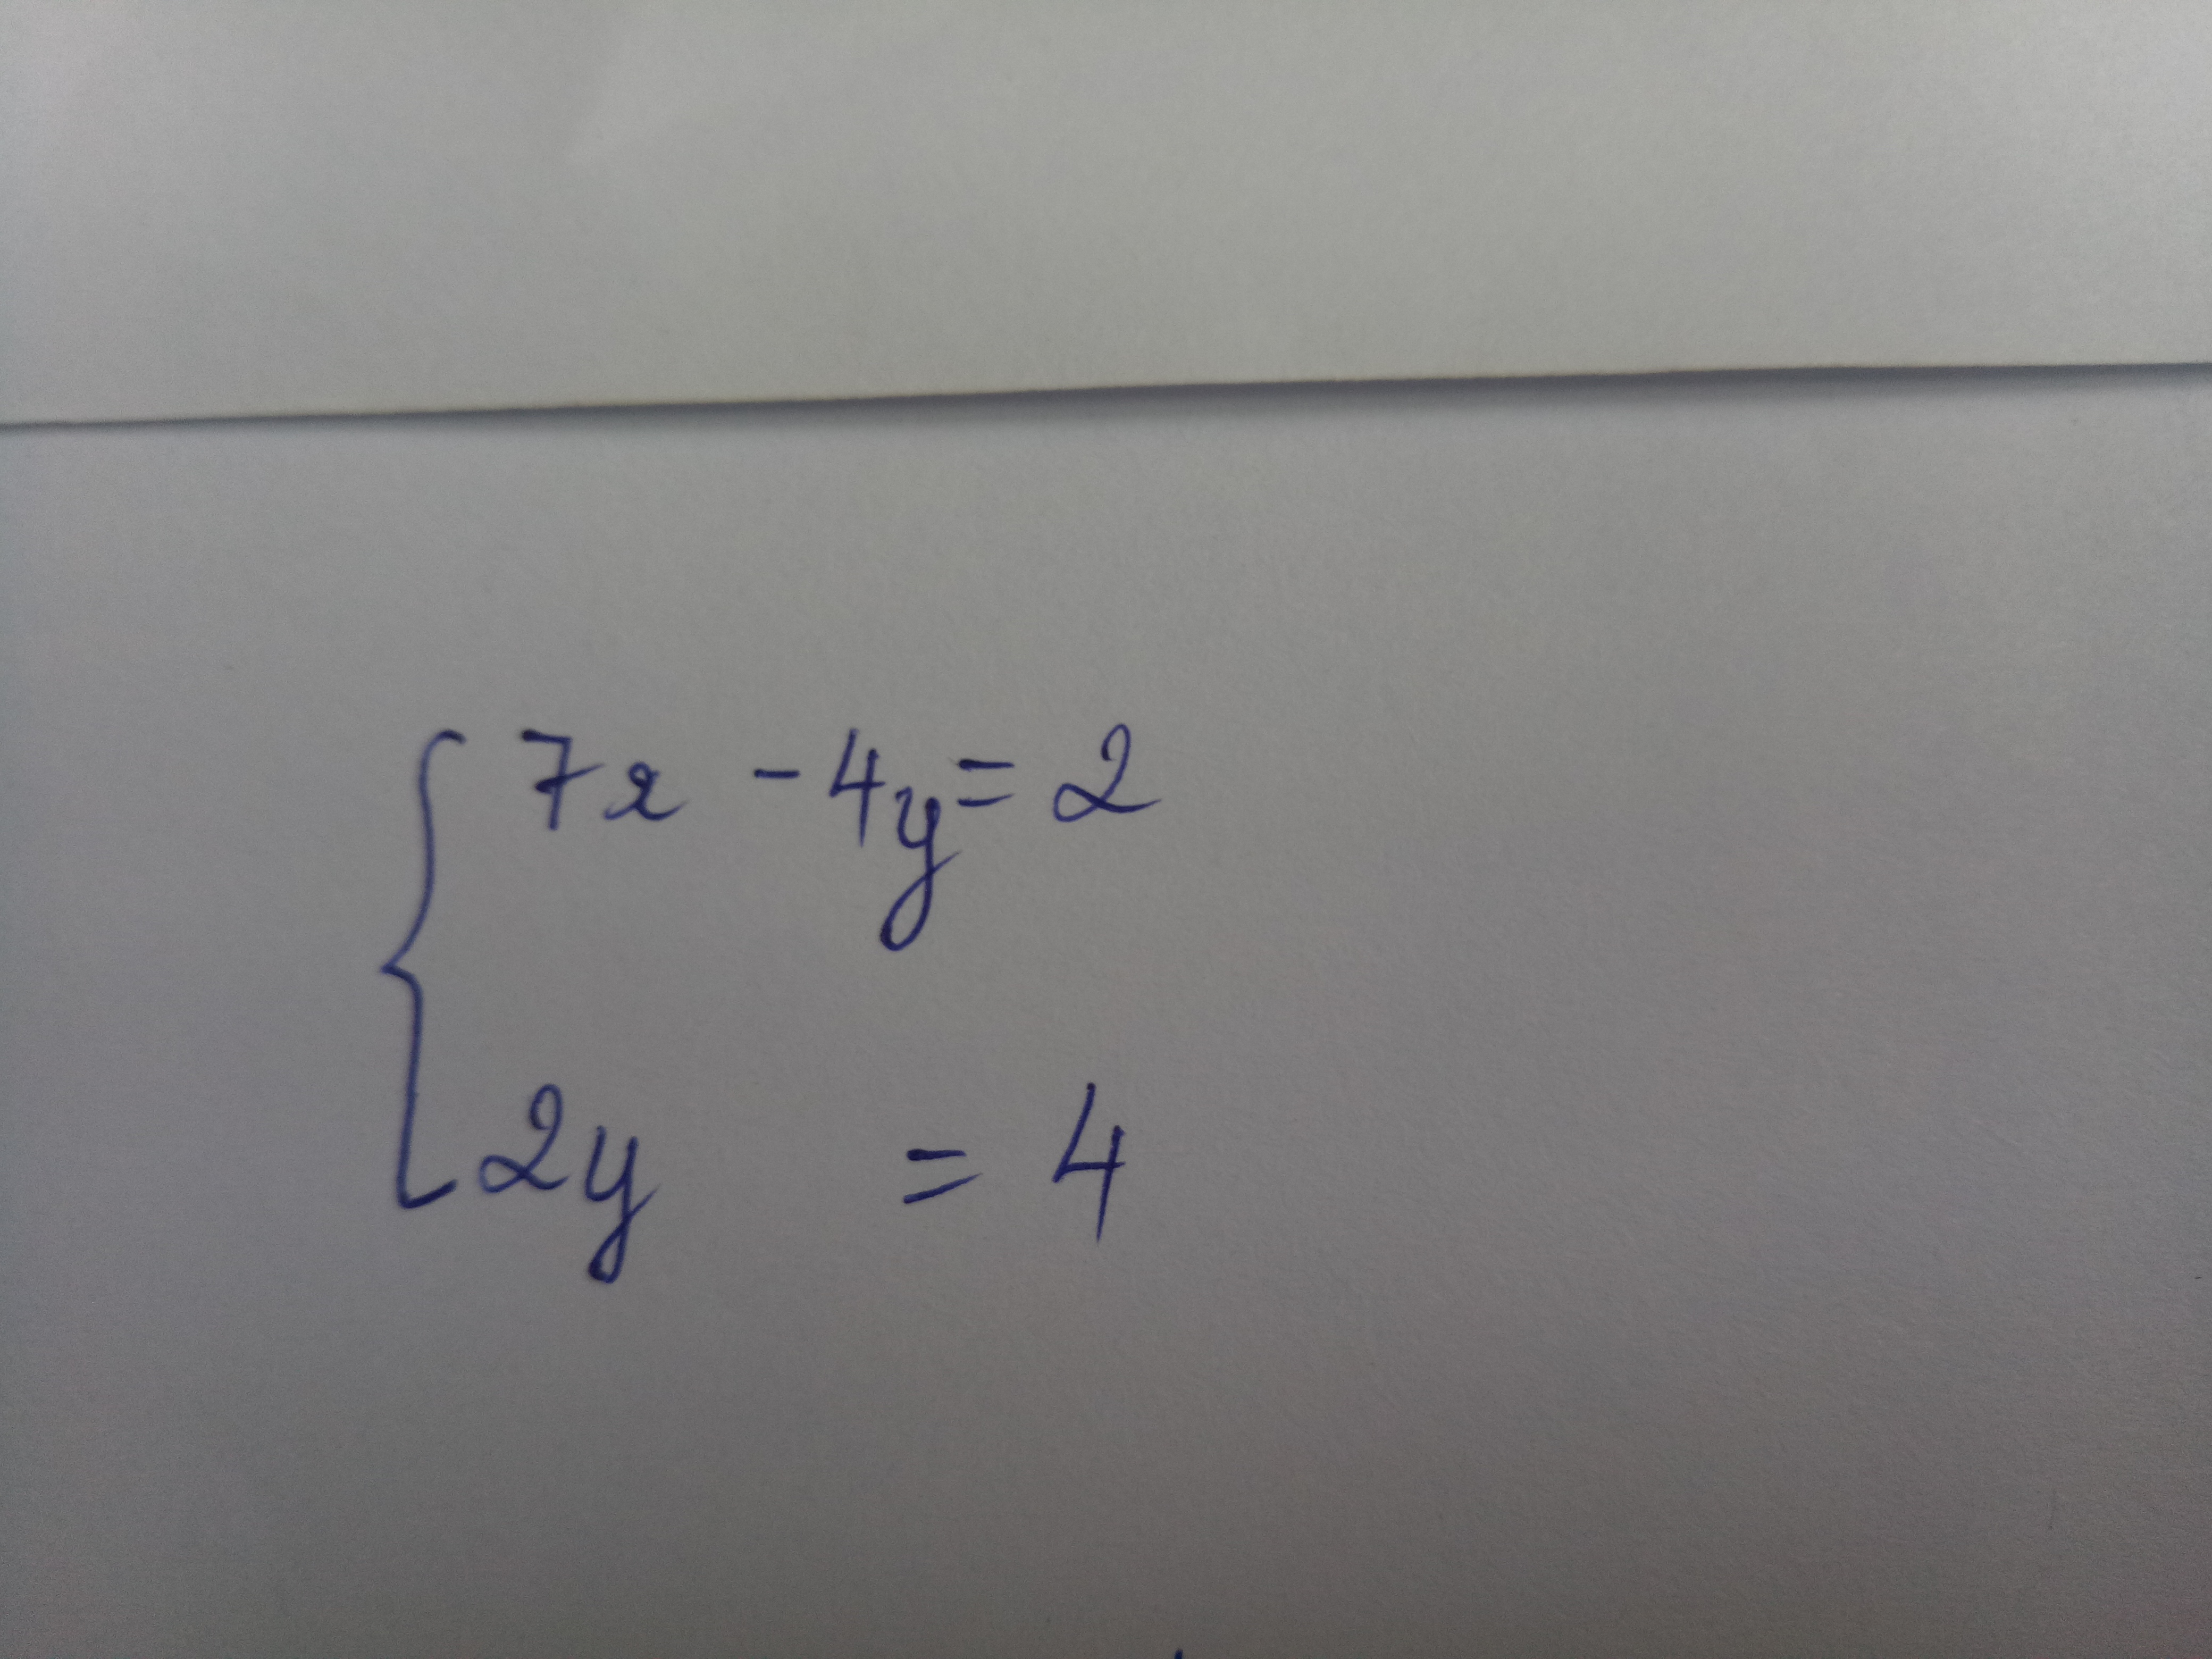 7x - 4y = 2
2y = 4